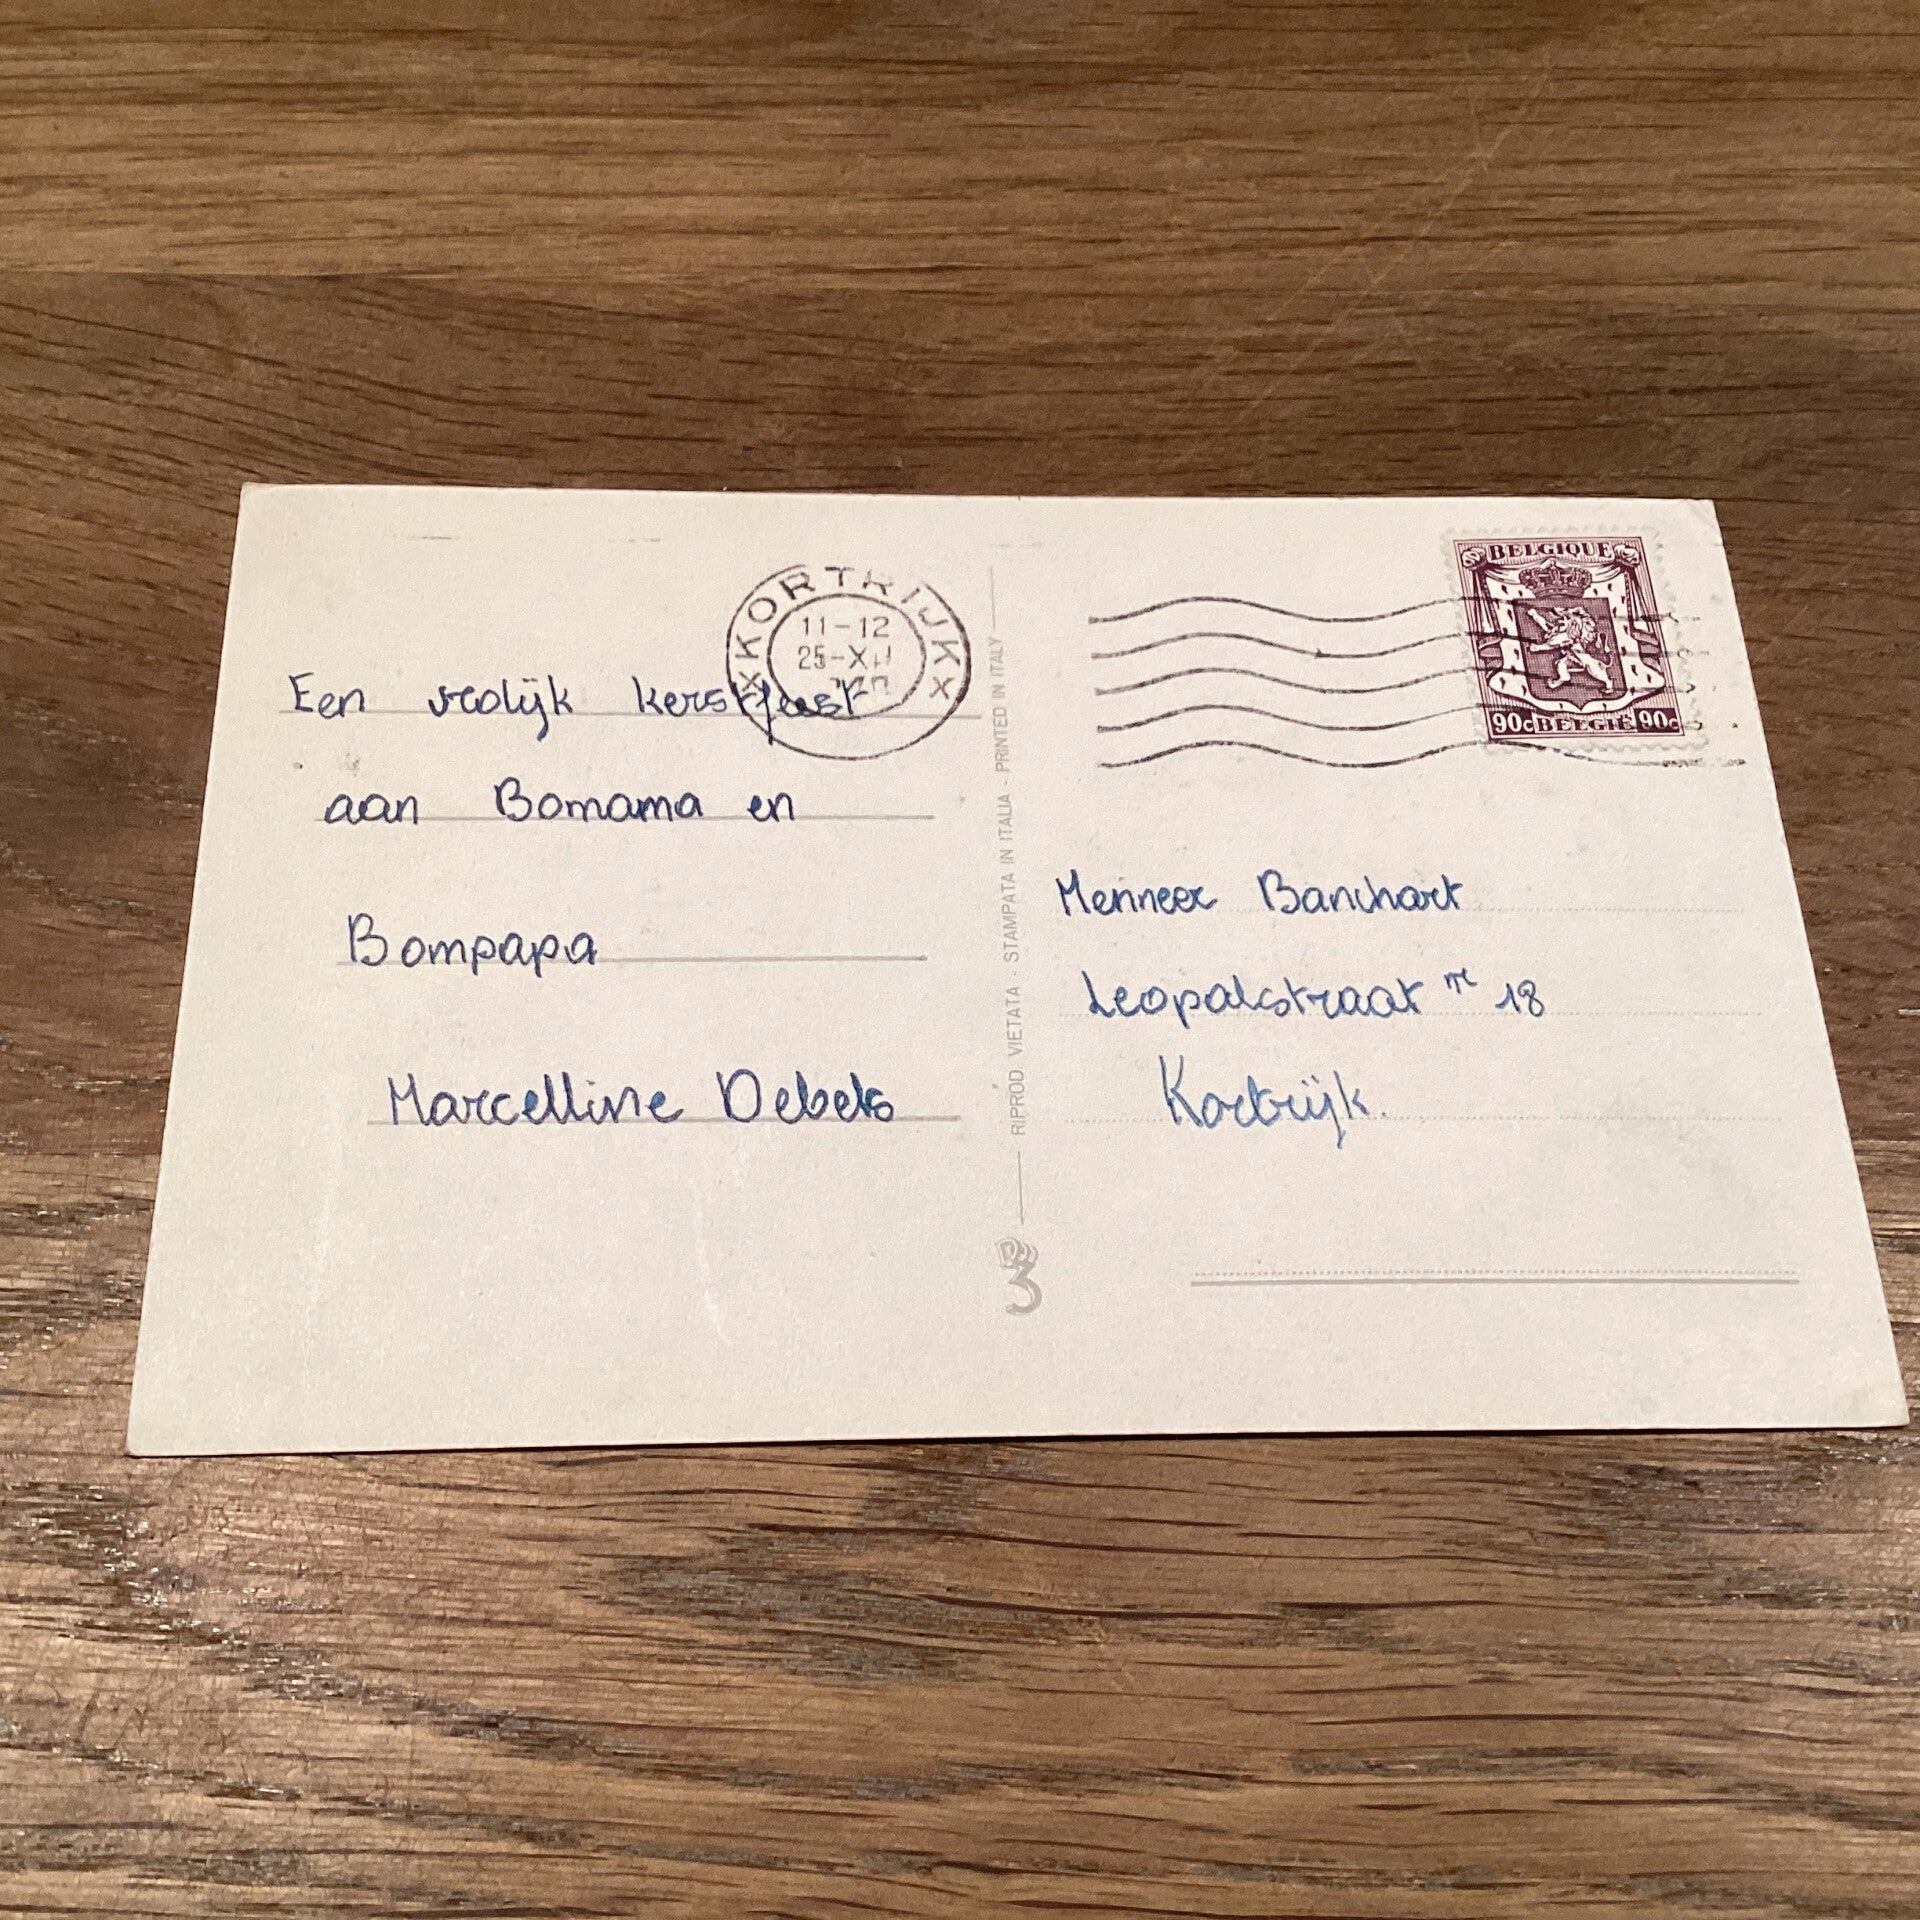 KORTRIJK
11-12
25-XII
BELGIQUE
90c BELGIE 90c
Een vrolijk kerstfeest
aan Bomama en
Bompapa
Marcelline Debels
RIPROD VIETATA - STAMPATA IN ITALIA - PRINTED IN ITALY
Menneer Banchart
Leopalstraat nr 18
Kortrijk.